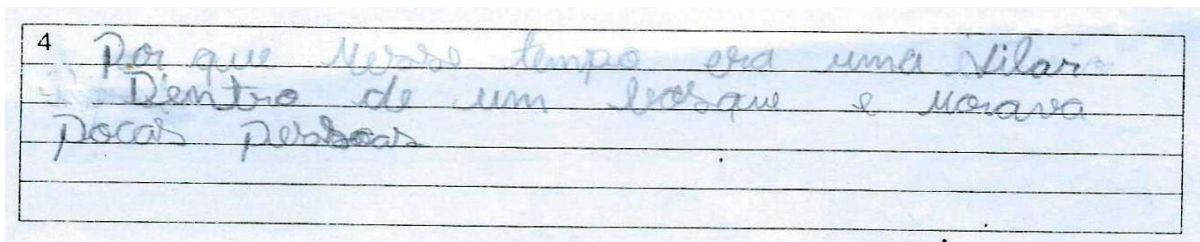 4 Por que nesse tempo era uma vilar
Dentro de um bosque e morava
pocas pessoas